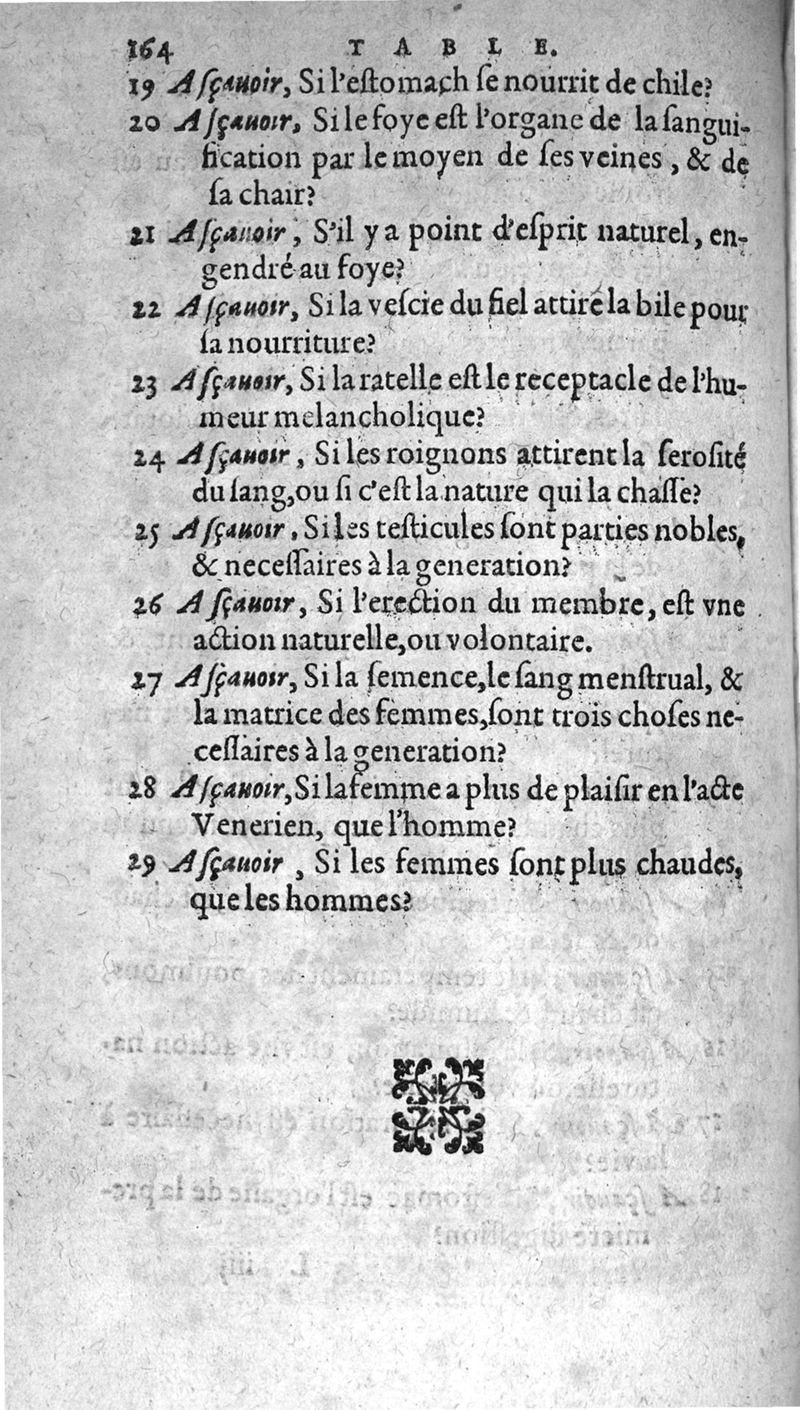 164 TABLE.
19 Aſçauoir, Si l'eſtomach ſe nourrit de chile?
20 Aſçauoir, Si le foye eſt l'organe de la ſangui-
fication par le moyen de ſes veines, & de
ſa chair?
21 Aſçauoir, S'il y a point d'eſprit naturel, en-
gendré au foye?
22 Aſçauoir, Si la veſcie du fiel attire la bile pour
ſa nourriture?
23 Aſçauoir, Si la ratelle eſt le receptacle de l'hu-
meur melancholique?
24 Aſçauoir, Si les roignons attirent la ſeroſité
du ſang, ou ſi c'eſt la nature qui la chaſſe?
25 Aſçauoir, Si les teſticules ſont parties nobles,
& neceſſaires à la generation?
26 Aſçauoir, Si l'erection du membre, eſt vne
action naturelle, ou volontaire.
27 Aſçauoir, Si la ſemence, le ſang menſtrual, &
la matrice des femmes, ſont trois choſes ne-
ceſſaires à la generation?
28 Aſçauoir, Si la femme a plus de plaiſir en l'acte
Venerien, que l'homme?
29 Aſçauoir, Si les femmes ſont plus chaudes,
que les hommes?